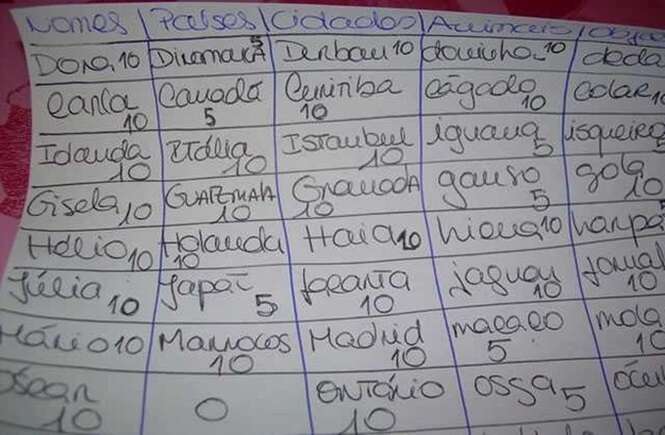 Nomes Países Cidades Animais
Dora 10 Dinamarca 5 Durban 10 doninha 10 deda
Carla 10 Canadá 5 Curitiba 10 Cágado 10 colar 1
Idauda 10 Itália 10 Istambul 10 iguana 5 isqueiro 5
Gisela 10 Guatemala 10 Granada 10 ganso 5 gola 10
Hélio 10 Holanda 10 Haia 10 hiena 10 harpa
Júlia 10 Japão 5 10 jaguar 10 jornal 10
Mário 10 Marrocos 10 Madrid 10 macaco 5 mola 10
Óscar 10 0 Ontário 10 ossa 5 ócu